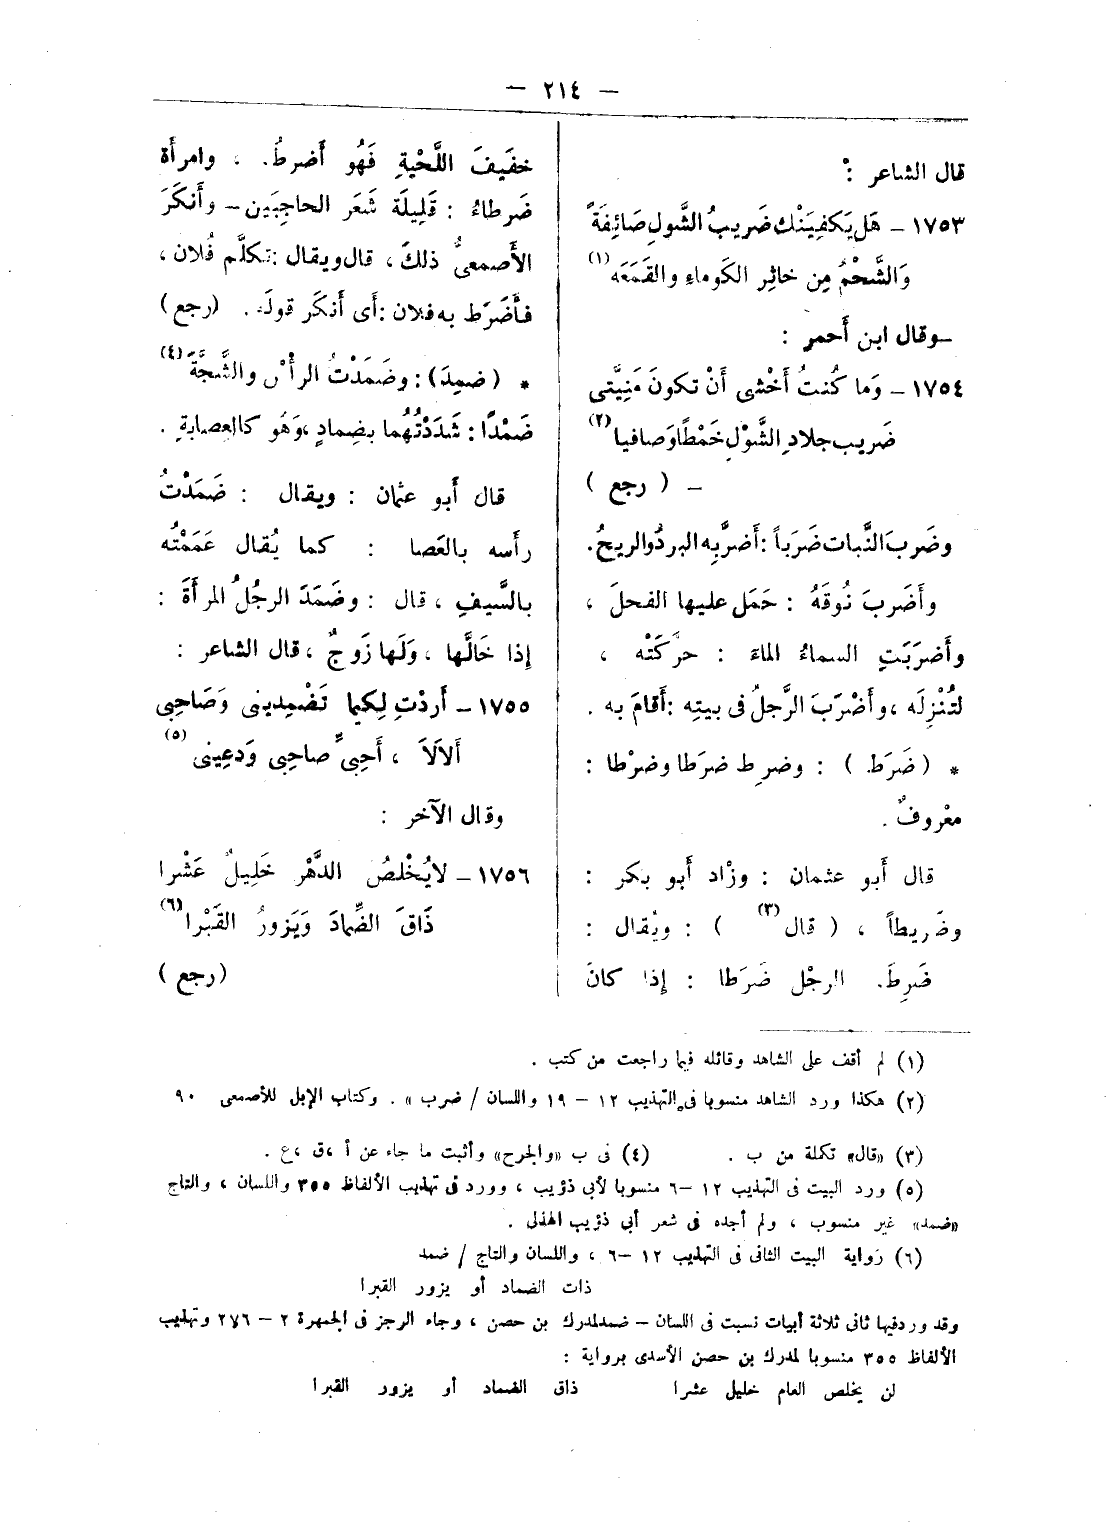 — ٢١٤ —
قال الشاعر :
١٧٥٣ – هَل يَكفِيَنْك ضَريبُ الشَّولِ صَائِفَةً
وَالشَّحْمُ مِن خاثِر الكَوماءِ والقَمَعَه (١)
– وقال ابن أَحمر :
١٧٥٤ – وَما كُنتُ أَخْشى أَنْ تكونَ مَنِيَّتى
ضَريب جلادِ الشَّوْلِ خَمْطًا وَصافيا (٢)
– ( رجع )
وضَرِبَ النَّبات ضَرَباً : أَضرَّ به البردُ والريحُ.
وأَضرَبَ نُوقَهُ : حَمَل عليها الفحلَ ،
وأَضرَبَتِ السماءُ الماءَ : حرَّكَتْه ،
لتُنْزِلَه ، وأَضْرَبَ الرَّجلُ فى بيتِه : أَقامَ به .
* ( ضَرَط ) : وضرِط ضرَطا وضرْطا :
معْروفٌ .
قال أَبو عثمان : وزْاد أَبو بكر :
وضَريطاً ، ( قال (٣) ) : ويُقال :
ضَرِطَ الرجُل ضَرَطا : إِذا كانَ
خفيَفَ اللَّحْيةِ فَهُو أَضرطُ ، وامرأَة
ضَرطاءُ : قَلِيلَة شَعَر الحاجِبَين – وأَنكَرَ
الأَصمعىُّ ذلكَ ، قال ويقال : تكلَّم فُلان ،
فأَضَرَط به فلان : أَى أَنكَر قولَه . (رجع)
* ( ضمِدَ ) : وضَمَدْتُ الرأْس والشَّجَّةَ (٤)
ضَمْدًا : شَدَدْتُهُما بضِمادٍ ، وَهُو كالعِصابةِ .
قال أَبو عثمان : ويقال : ضَمَدْتُ
رأْسه بالعَصا : كما يُقال عَمَمْتُه
بالسَّيفِ ، قال : وضَمَدَ الرجُلُ المرأَةَ :
إِذا خَالَّها ، وَلَها زَوجٌ ، قال الشاعر :
١٧٥٥ – أَردْتِ لِكيما تَضْمِدِينى وَصَاحِبى
أَلاَلاَ ، أَحِبىِّ صاحِبى وَدعِينى (٥)
وقال الآخر :
١٧٥٦ – لا يُخْلصُ الدَّهْر خَلِيلٌ عَشْرا
ذَاقَ الضِّمادَ وَيَزورُ القَبْرا (٦)
(رجع )
(١) لم أقف على الشاهد وقائله فيما راجعت من كتب .
(٢) هكذا ورد الشاهد منسوبا فى التهذيب ١٢ – ١٩ واللسان / ضرب » . وكتاب الإبل للأصمعى ٩٠
(٣) «قال» تكملة من ب . (٤) فى ب «والجرح» وأثبت ما جاء عن أ ، ق ، ع .
(٥) ورد البيت فى التهذيب ١٢ – ٦ منسوبا لأبى ذؤيب ، وورد فى تهذيب الألفاظ ٣٥٥ واللسان ، والتاج
«ضمد» غير منسوب ، ولم أجده فى شعر أبى ذؤيب الهذلى .
(٦) رواية البيت الثانى فى التهذيب ١٢ – ٦ ، واللسان والتاج / ضمد
ذات الضماد أو يزور القبرا
وقد ورد فيها ثانى ثلاثة أبيات نسبت فى اللسان – ضمد لمدرك بن حصن ، وجاء الرجز فى الجمهرة ٢ – ٢٧٦ وتهذيب
الألفاظ ٣٥٥ منسوبا لمدرك بن حصن الأسدى برواية :
لن يخلص العام خليل عشرا ذاق الضماد أو يزور القبرا